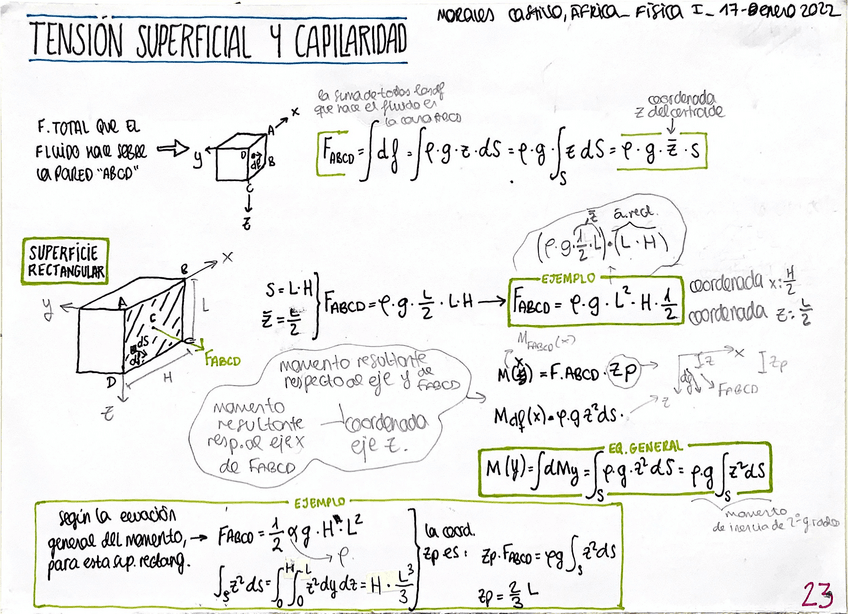 MORALES CASTILLO, ÁFRICA_ FÍSICA I_ 17-Enero 2022
TENSIÓN SUPERFICIAL Y CAPILARIDAD
F. TOTAL QUE EL
FLUIDO HACE SOBRE
LA PARED "ABCD"
x
A
y
D
df
B
C
z
la suma de todos los df
que hace el fluido en
la cara ABCD
coordenada
z del centroide
F_ABCD = ∫df = ∫ρ·g·z·dS = ρ·g·∫_S z dS = ρ·g·z̄·s
SUPERFICIE
RECTANGULAR
x
B
y
A
L
C
dS
df
C
F_ABCD
D
H
z
S = L·H
z̄ = L/2
F_ABCD = ρ·g·L/2·L·H →
z̄ á.rect.
(ρ·g·1/2·L)·(L·H)
EJEMPLO
F_ABCD = ρ·g·L²·H·1/2
coordenada x: H/2
coordenada z: L/2
momento resultante
respecto al eje y de
F_ABCD
momento
resultante
resp. al eje x
de F_ABCD
coordenada
eje z.
M_FABCD(x)
x
M(y) = F.ABCD·zp
Mdf(x) = ρ·g z² ds.
x
z
zp
df
F_ABCD
z
EQ. GENERAL
M(y) = ∫dMy = ∫_S ρ·g·z² dS = ρ·g ∫_S z² dS
momento
de inercia de 2º grado
EJEMPLO
según la ecuación
general del momento, →
para esta sup. rectang.
F_ABCD = 1/2 ρ g·H·L²
ρ.
∫_S z² dS = ∫_0^H ∫_0^L z² dy dz = H·L³/3
la coord.
zp es:
zp·F_ABCD = ρg ∫_S z² ds
zp = 2/3 L
23